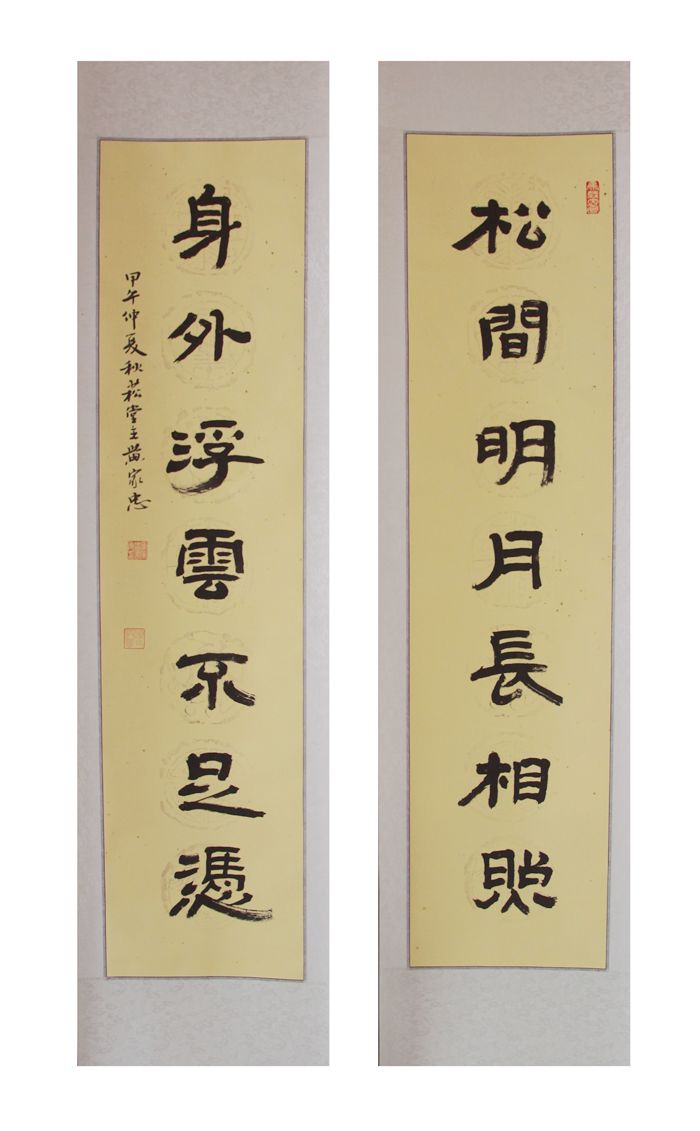 松間明月長相照
身外浮雲不足憑
甲午仲夏秋菘堂主黄家忠